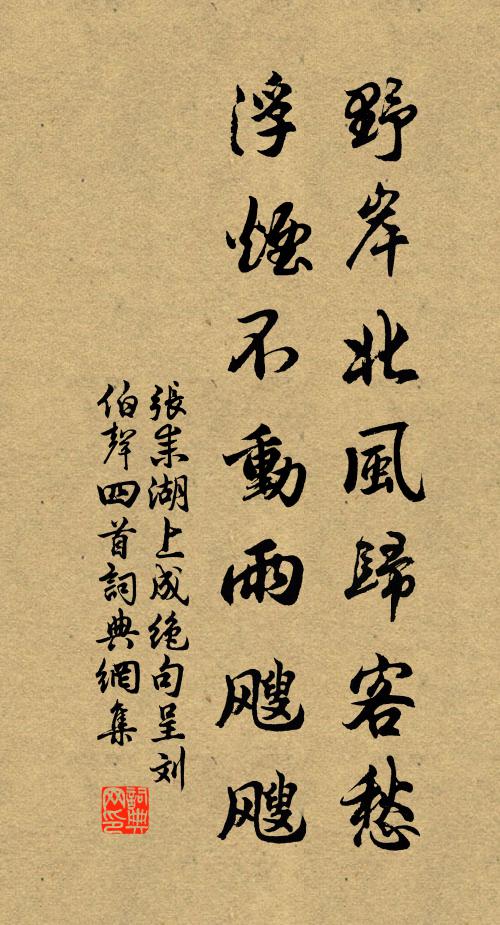 野岸北風歸客愁
浮煙不動雨颼颼
張耒湖上成絶句呈刘
伯聲四首詞典網集
詞典
网印